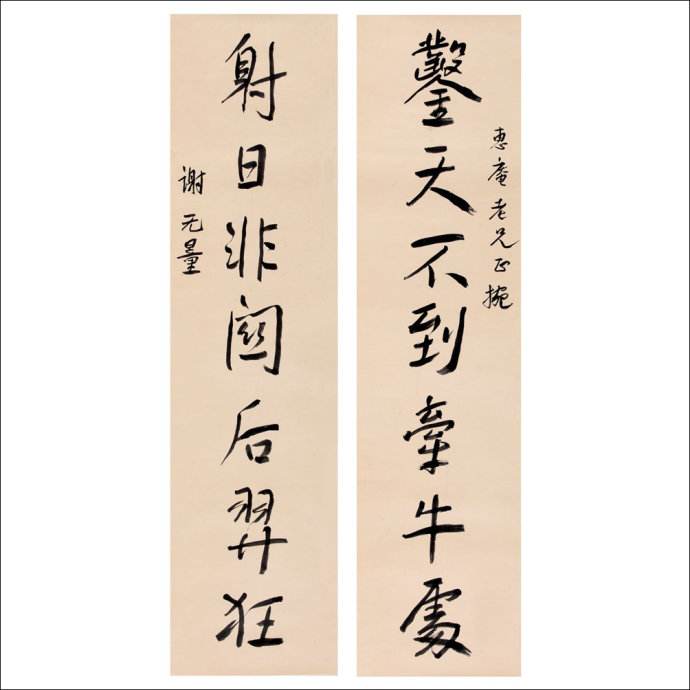 惠庵老兄正捥
鑿天不到牽牛處
射日非關后羿狂
謝无量